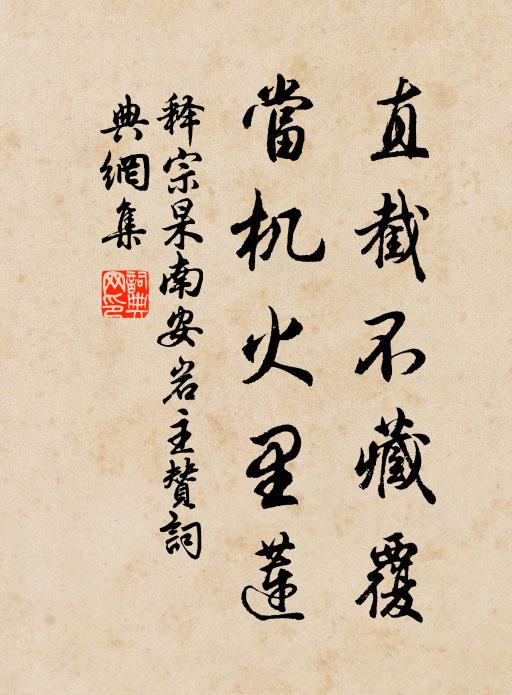 直截不藏覆
當机火里蓮
释宗杲南安岩主赞詞
典網集
詞典网印